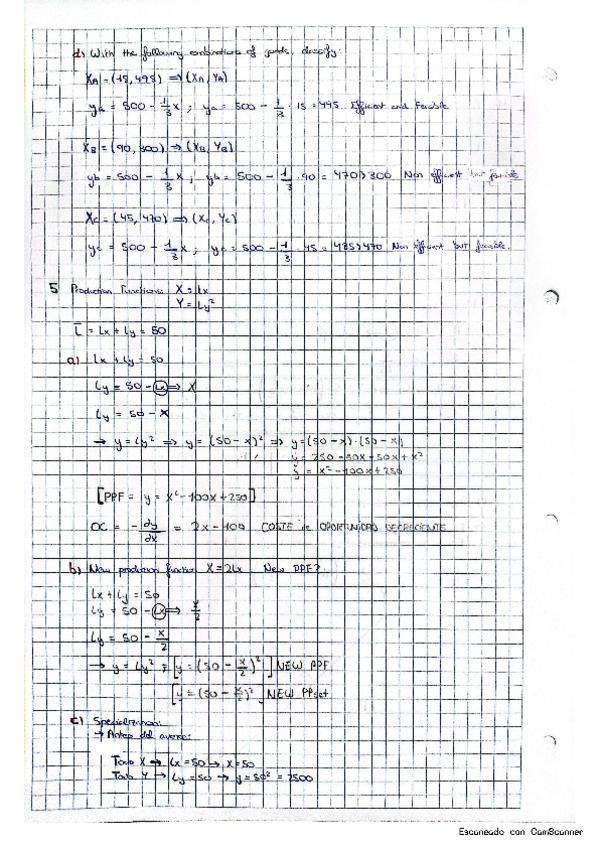 d) With the following combinations of goods, classify:
XA = (15, 495) ⇒ (XA, YA)
ya = 500 - 1/3 x ; ya = 500 - 1/3 · 15 = 495 Efficient and Feasible
XB = (90, 300) → (XB, YB)
yb = 500 - 1/3 x ; yb = 500 - 1/3 · 90 = 470 > 300 Non efficient but feasible
XC = (45, 470) ⇒ (XC, YC)
yc = 500 - 1/3 x ; yc = 500 - 1/3 · 45 = 485 > 470 Non efficient but feasible.
5 Production Functions: X = Lx
Y = Ly²
L̄ = Lx + Ly = 50
a) Lx + Ly = 50
Ly = 50 - Lx ⇒ X
Ly = 50 - X
→ y = Ly² ⇒ y = (50 - x)² ⇒ y = (50 - x) · (50 - x)
y = 250 - 50x - 50x + x²
y = x² - 100x + 250
[PPF = y = x² - 100x + 250]
OC = - dy/dx = 2x - 100 COSTE de OPORTUNIDAD DECRECIENTE
b) New production function X = 2Lx New PPF?
Lx + Ly = 50
Ly = 50 - Lx ⇒ x/2
Ly = 50 - x/2
→ y = Ly² = [y = (50 - x/2)²] NEW PPF
[y = (50 - x/2)²] NEW PPset
c) Specialization:
→ Antes del avance:
Todo X → Lx = 50 → X = 50
Todo Y → Ly = 50 → y = 50² = 2500
Escaneado con CamScanner